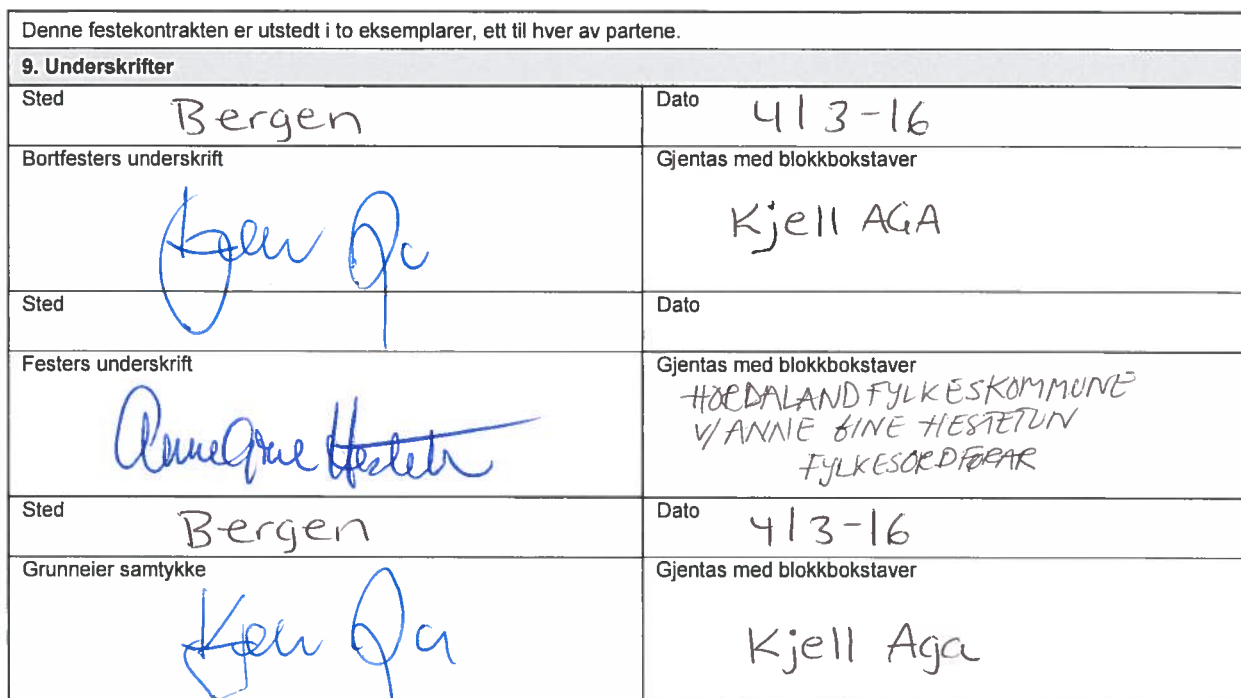 Denne festekontrakten er utstedt i to eksemplarer, ett til hver av partene.
9. Underskrifter
Sted Bergen
Dato 4/3-16
Bortfesters underskrift
Gjentas med blokkbokstaver
Kjell AGA
Sted
Dato
Festers underskrift
Gjentas med blokkbokstaver
HORDALAND FYLKESKOMMUNE
V/ ANNE GINE HESTETUN
FYLKESORDFØRAR
Sted Bergen
Dato 4/3-16
Grunneier samtykke
Gjentas med blokkbokstaver
Kjell Aga